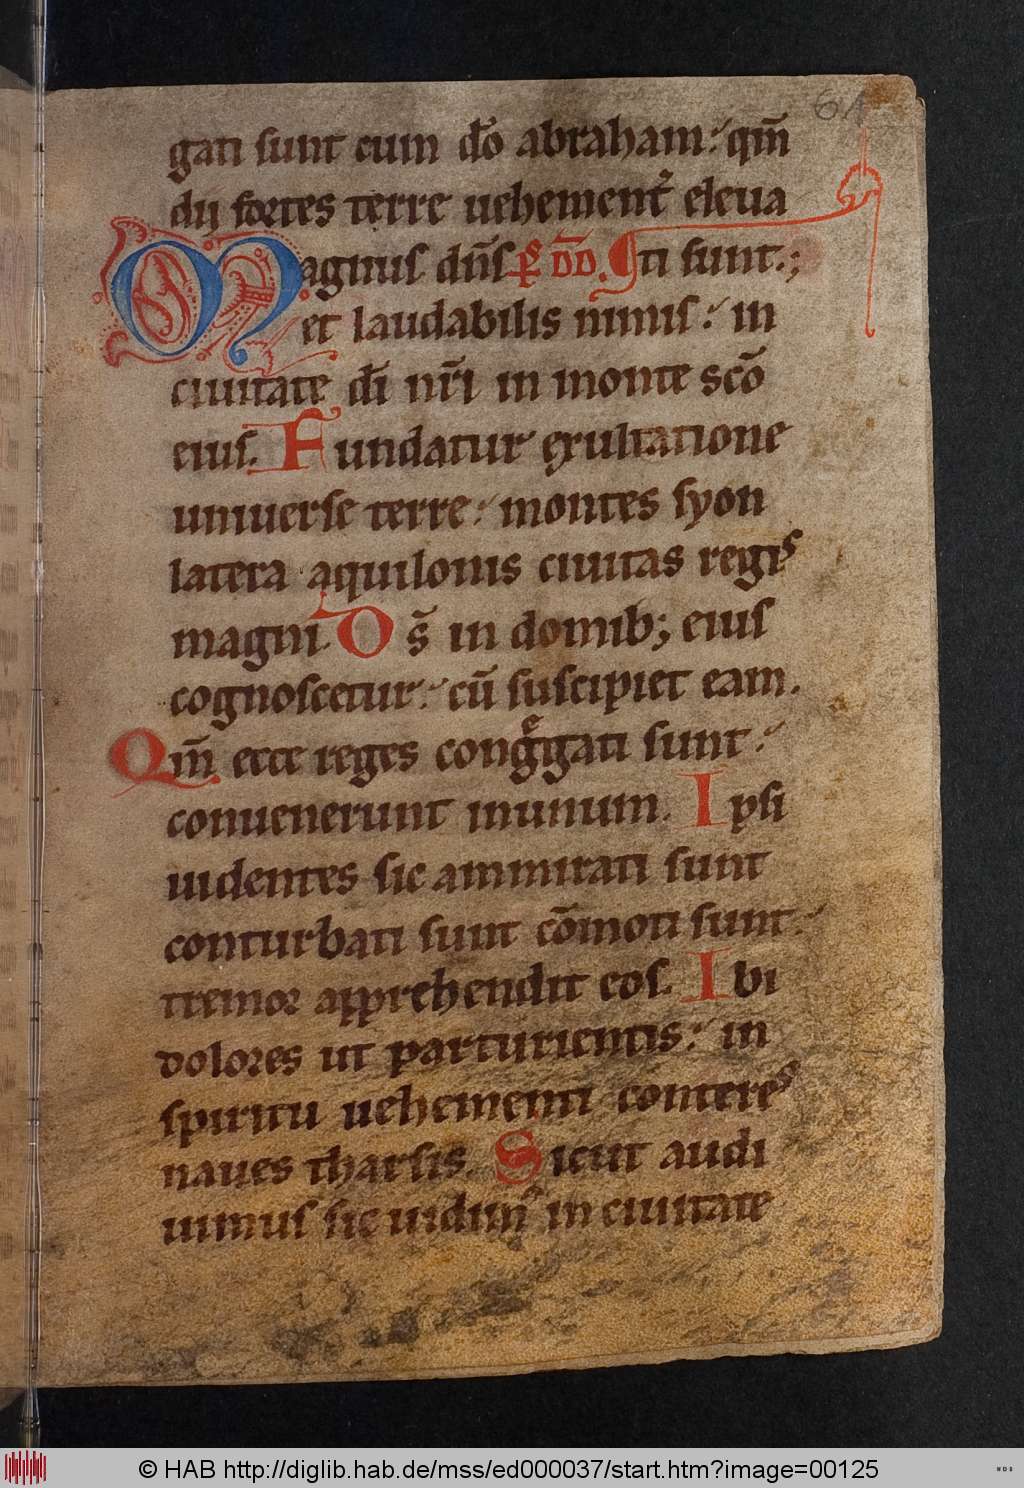 61
gati sunt cum dō abraham: qm̄
dij fortes terre uehement᷑ eleua
Magnus dn̄s p̄s DD. ti sunt.;
et laudabilis nimis: in
ciuitate dī nr̄i in monte scō
eius. Fundatur exultatione
uniuerse terre: montes syon
latera aquilonis ciuitas regis
magni. Ds̄ in domib; eius
cognoscetur: cū suscipiet eam.
Qm̄ ecce reges congͤgati sunt:
conuenerunt inunum. Ipsi
uidentes sic ammirati sunt
conturbati sunt cōmoti sunt:
tremor apprehendit eos. Ibi
dolores ut parturientis: in
spiritu uehementi conteres
naues tharsis. Sicut audi
uimus sic uidim᷒ in ciuitate
© HAB http://diglib.hab.de/mss/ed000037/start.htm?image=00125